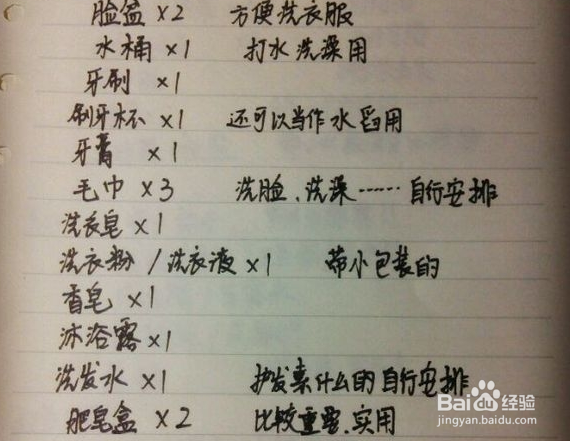 脸盆 ×2 方便洗衣服
水桶 ×1 打水洗澡用
牙刷 ×1
刷牙杯 ×1 还可以当作水舀用
牙膏 ×1
毛巾 ×3 洗脸、洗澡……自行安排
洗衣皂 ×1
洗衣粉/洗衣液 ×1 带小包装的
香皂 ×1
沐浴露 ×1
洗发水 ×1 护发素什么的自行安排
肥皂盒 ×2 比较重要、实用
Baidu经验
jingyan.baidu.com